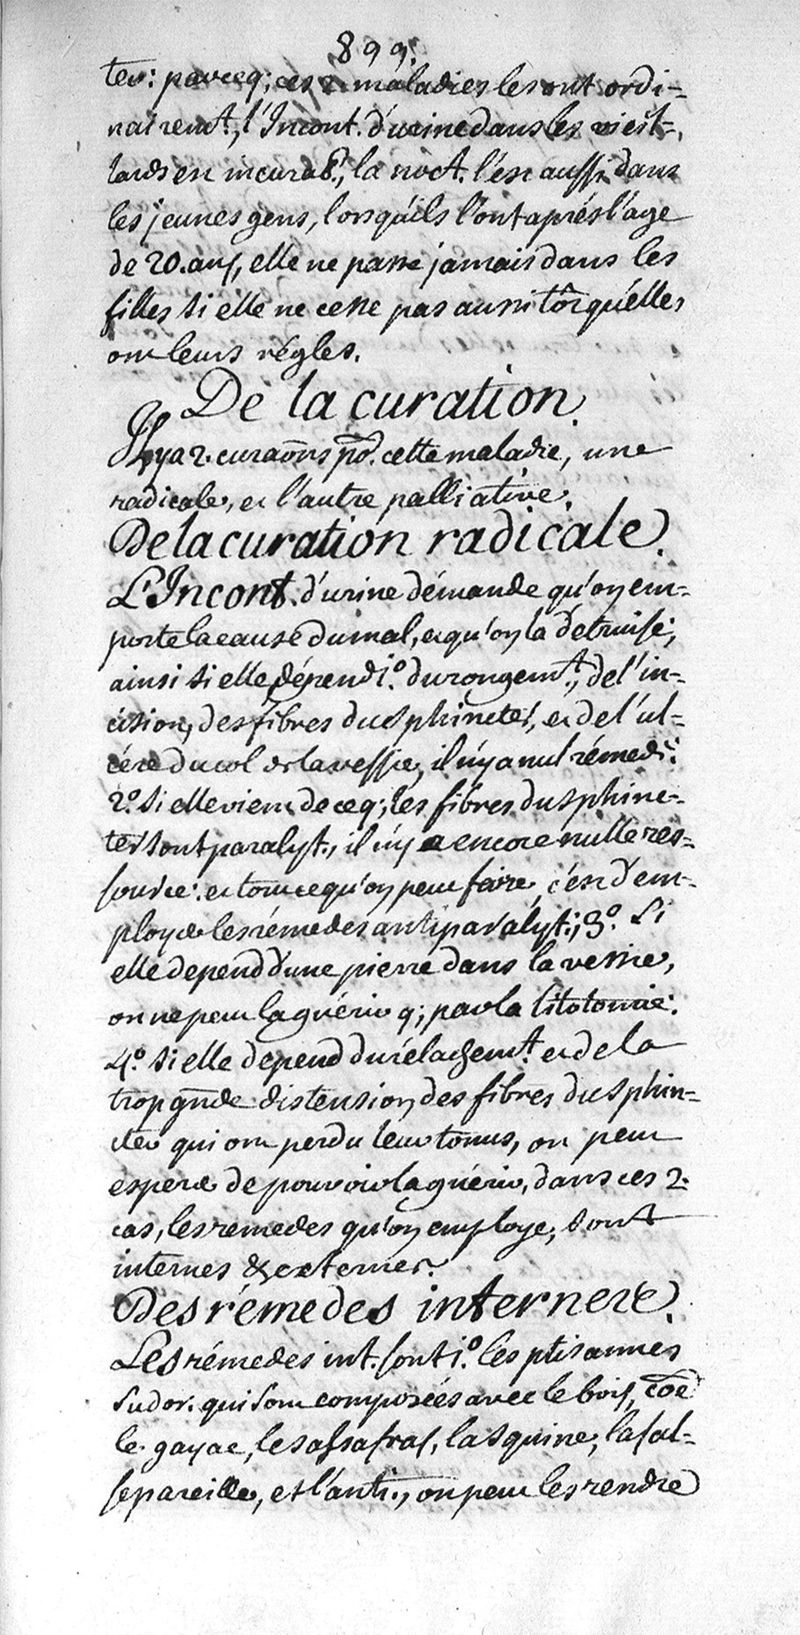 899.
ter: parceq; ces 2. maladies le sont ordi-
nairemt., l'Incont. d'urine dans les vieil-
lards en incurab., la noct. l'est aussi dans
les jeunes gens, lorsqu'ils l'ont aprés l'age
de 20. ans, elle ne passe jamais dans les
filles si elle ne cesse pas aussitôt qu'elles
ont leurs régles.
De la curation.
Il y a 2. curaõns po.r cette maladie, une
radicale, et l'autre palliative.
De la curation radicale.
L'Incont. d'urine démande qu'on em-
porte la cause du mal, et qu'on la detruise;
ainsi si elle dépend 1.o du rongemt., de l'in-
cision, des fibres du sphincter, et de l'ul-
cére du col de la vessie, il n'y a nul rémede:
2.o si elle vient de ceq; les fibres du sphinc-
ter sont paralyt., il n'y a encore nulle res-
source: et tout ce qu'on peut faire, c'est d'em-
ployer les rémedes antiparalyt.; 3.o si
elle depend d'une pierre dans la vessie,
on ne peut la guérir q; par la litotomie:
4.o si elle depend du rélachemt. et de la
trop gñde distension des fibres du sphin-
cter qui ont perdu leur tonus, on peut
esperer de pouvoir la guérir, dans ces 2.
cas, les remedes qu'on employe, sont
internes & externes.
Des rémedes internes.
Les rémedes int. sont 1.o les ptisannes
sudor. qui sont composées avec le bois, cõe
le gayac, le sassafras, la squine, la sal-
separeille, et l'anti., on peut les rendre